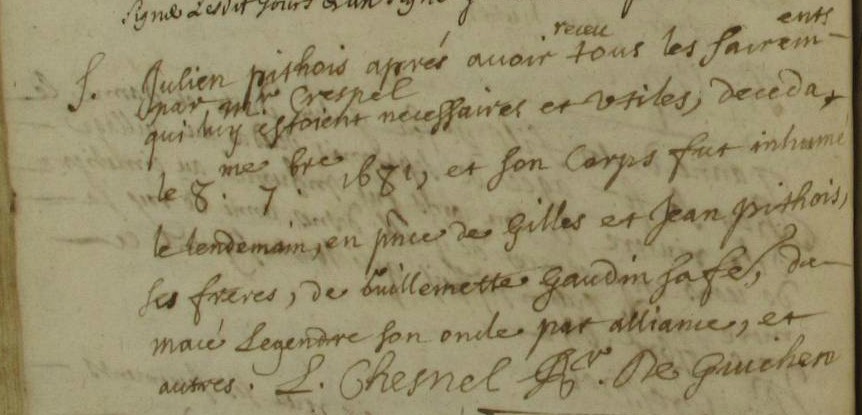 signé Lesdit jours & an signé
S. Julien pithois aprés avoir receu tous les sairements
par mr Crespel
qui luy estoient necessaires et utiles, deceda
le 8.me 7.bre 1681, et son Corps fut inhumé
le lendemain, en pñce de Gilles et Jean pithois,
ses freres, de Guillemette Gaudin sa fe, de
macé Legendre son oncle par alliance, et
autres. L. Chesnel Rr. De Guichen